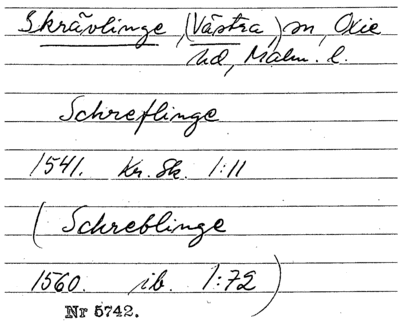 Skrävlinge, (Västra,) sn, Oxie
hd, Malm. l.
Schreflinge
1541. Kr. Sk. 1:11
(Schreblinge
1560. ib. 1:72)
Nr 5742.